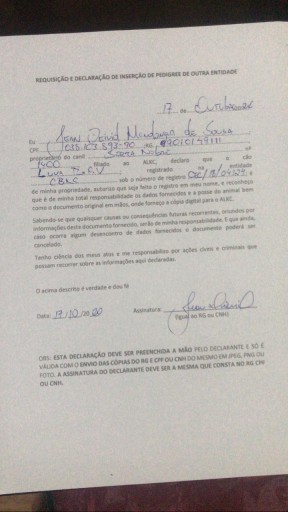 REQUISIÇÃO E DECLARAÇÃO DE INSERÇÃO DE PEDIGREE DE OUTRA ENTIDADE
17 de Outubro
Eu Jean David de Sousa
CPF. RG
proprietário do canil nº
1400 filiado ao ALKC, declaro que o cão
registrado na entidade
CBKC sob o número de registro
de minha propriedade, autorizo que seja feito o registro em meu nome, e reconheço
que é de minha total responsabilidade os dados fornecidos e a posse do animal bem
como o documento original em mãos, onde forneço a cópia digital para o ALKC.
Sabendo-se que quaisquer causas ou consequências futuras recorrentes, oriundos por
informações deste documento fornecido, serão da minha responsabilidade. E que ainda,
caso ocorra algum desencontro de dados fornecidos o documento poderá ser
cancelado.
Tenho ciência dos meus atos e me responsabilizo por ações cíveis e criminais que
possam recorrer sobre as informações aqui declaradas.
O acima descrito é verdade e dou fé
Data: 17/10/2020 Assinatura:
(igual ao RG ou CNH)
OBS: ESTA DECLARAÇÃO DEVE SER PREENCHIDA A MÃO PELO DECLARANTE E SÓ É
VÁLIDA COM O ENVIO DAS CÓPIAS DO RG E CPF OU CNH DO MESMO EM JPEG, PNG OU
FOTO. A ASSINATURA DO DECLARANTE DEVE SER A MESMA QUE CONSTA NO RG CPF
OU CNH.